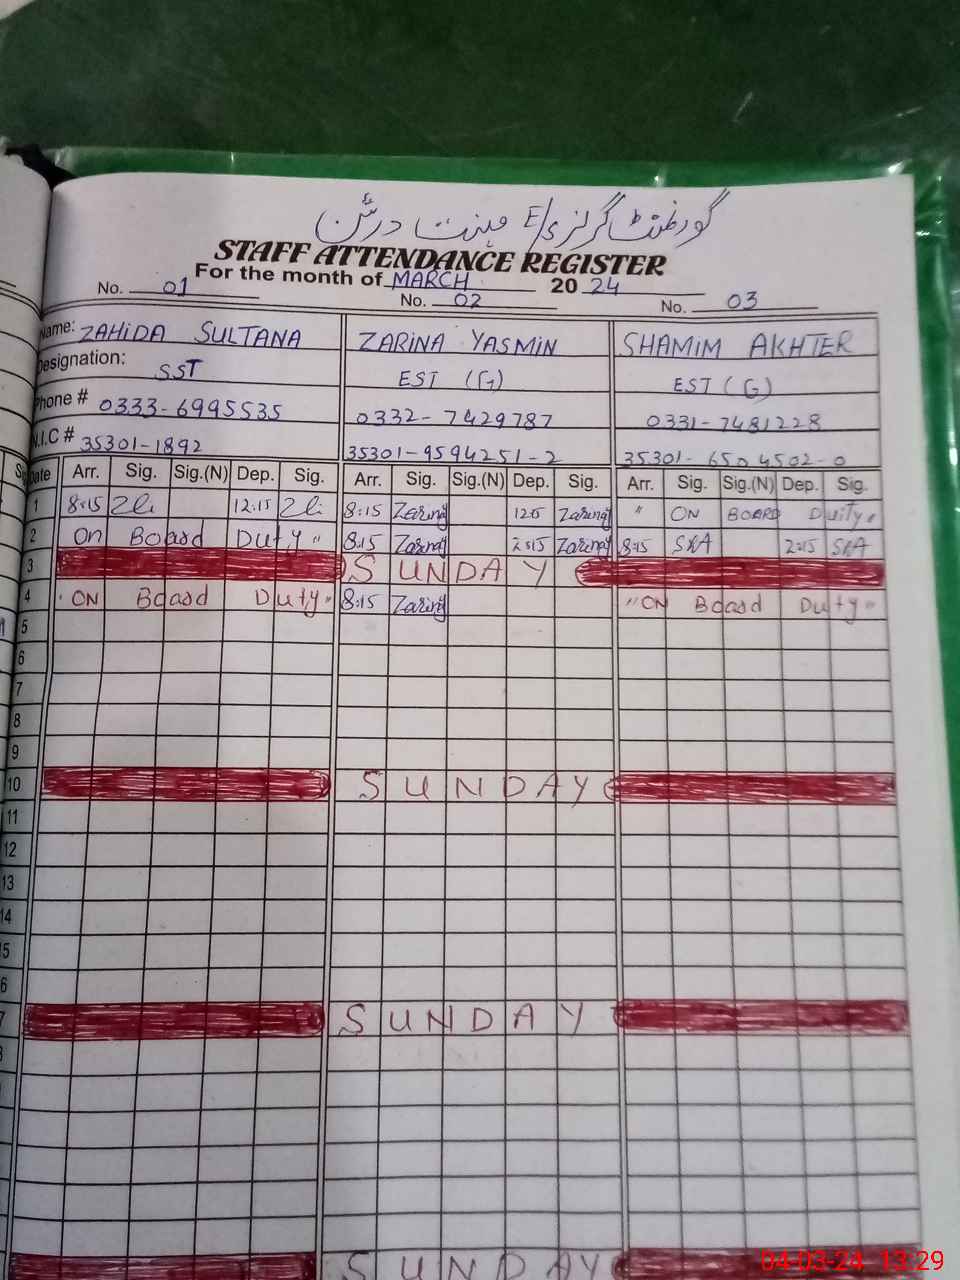 گورنمنٹ گرلز E/S
STAFF ATTENDANCE REGISTER
For the month of MARCH 2024
No. 01 No. 02 No. 03
Name: ZAHIDA SULTANA ZARINA YASMIN SHAMIM AKHTER
Designation: SST EST (G) EST (G)
Phone # 0333-6995535 0332-7429787 0331-7481228
N.I.C # 35301-1892 35301-9594251-2 35301-6504502-0
Date Arr. Sig. Sig.(N) Dep. Sig. Arr. Sig. Sig.(N) Dep. Sig. Arr. Sig. Sig.(N) Dep. Sig.
1 8:15 12:15 8:15 Zarina Zarina " ON BOARD Duity "
2 On Board Duty " 8:15 Zarina 2:15 Zarina 8:15 SKA 2:15 SKA
3 SUNDAY
4 " ON Board Duty " 8:15 Zarina " ON Board Duty "
5
6
7
8
9
10 SUNDAY
11
12
13
14
15
6
7 SUNDAY
SUNDAY
04-03-24 13:29